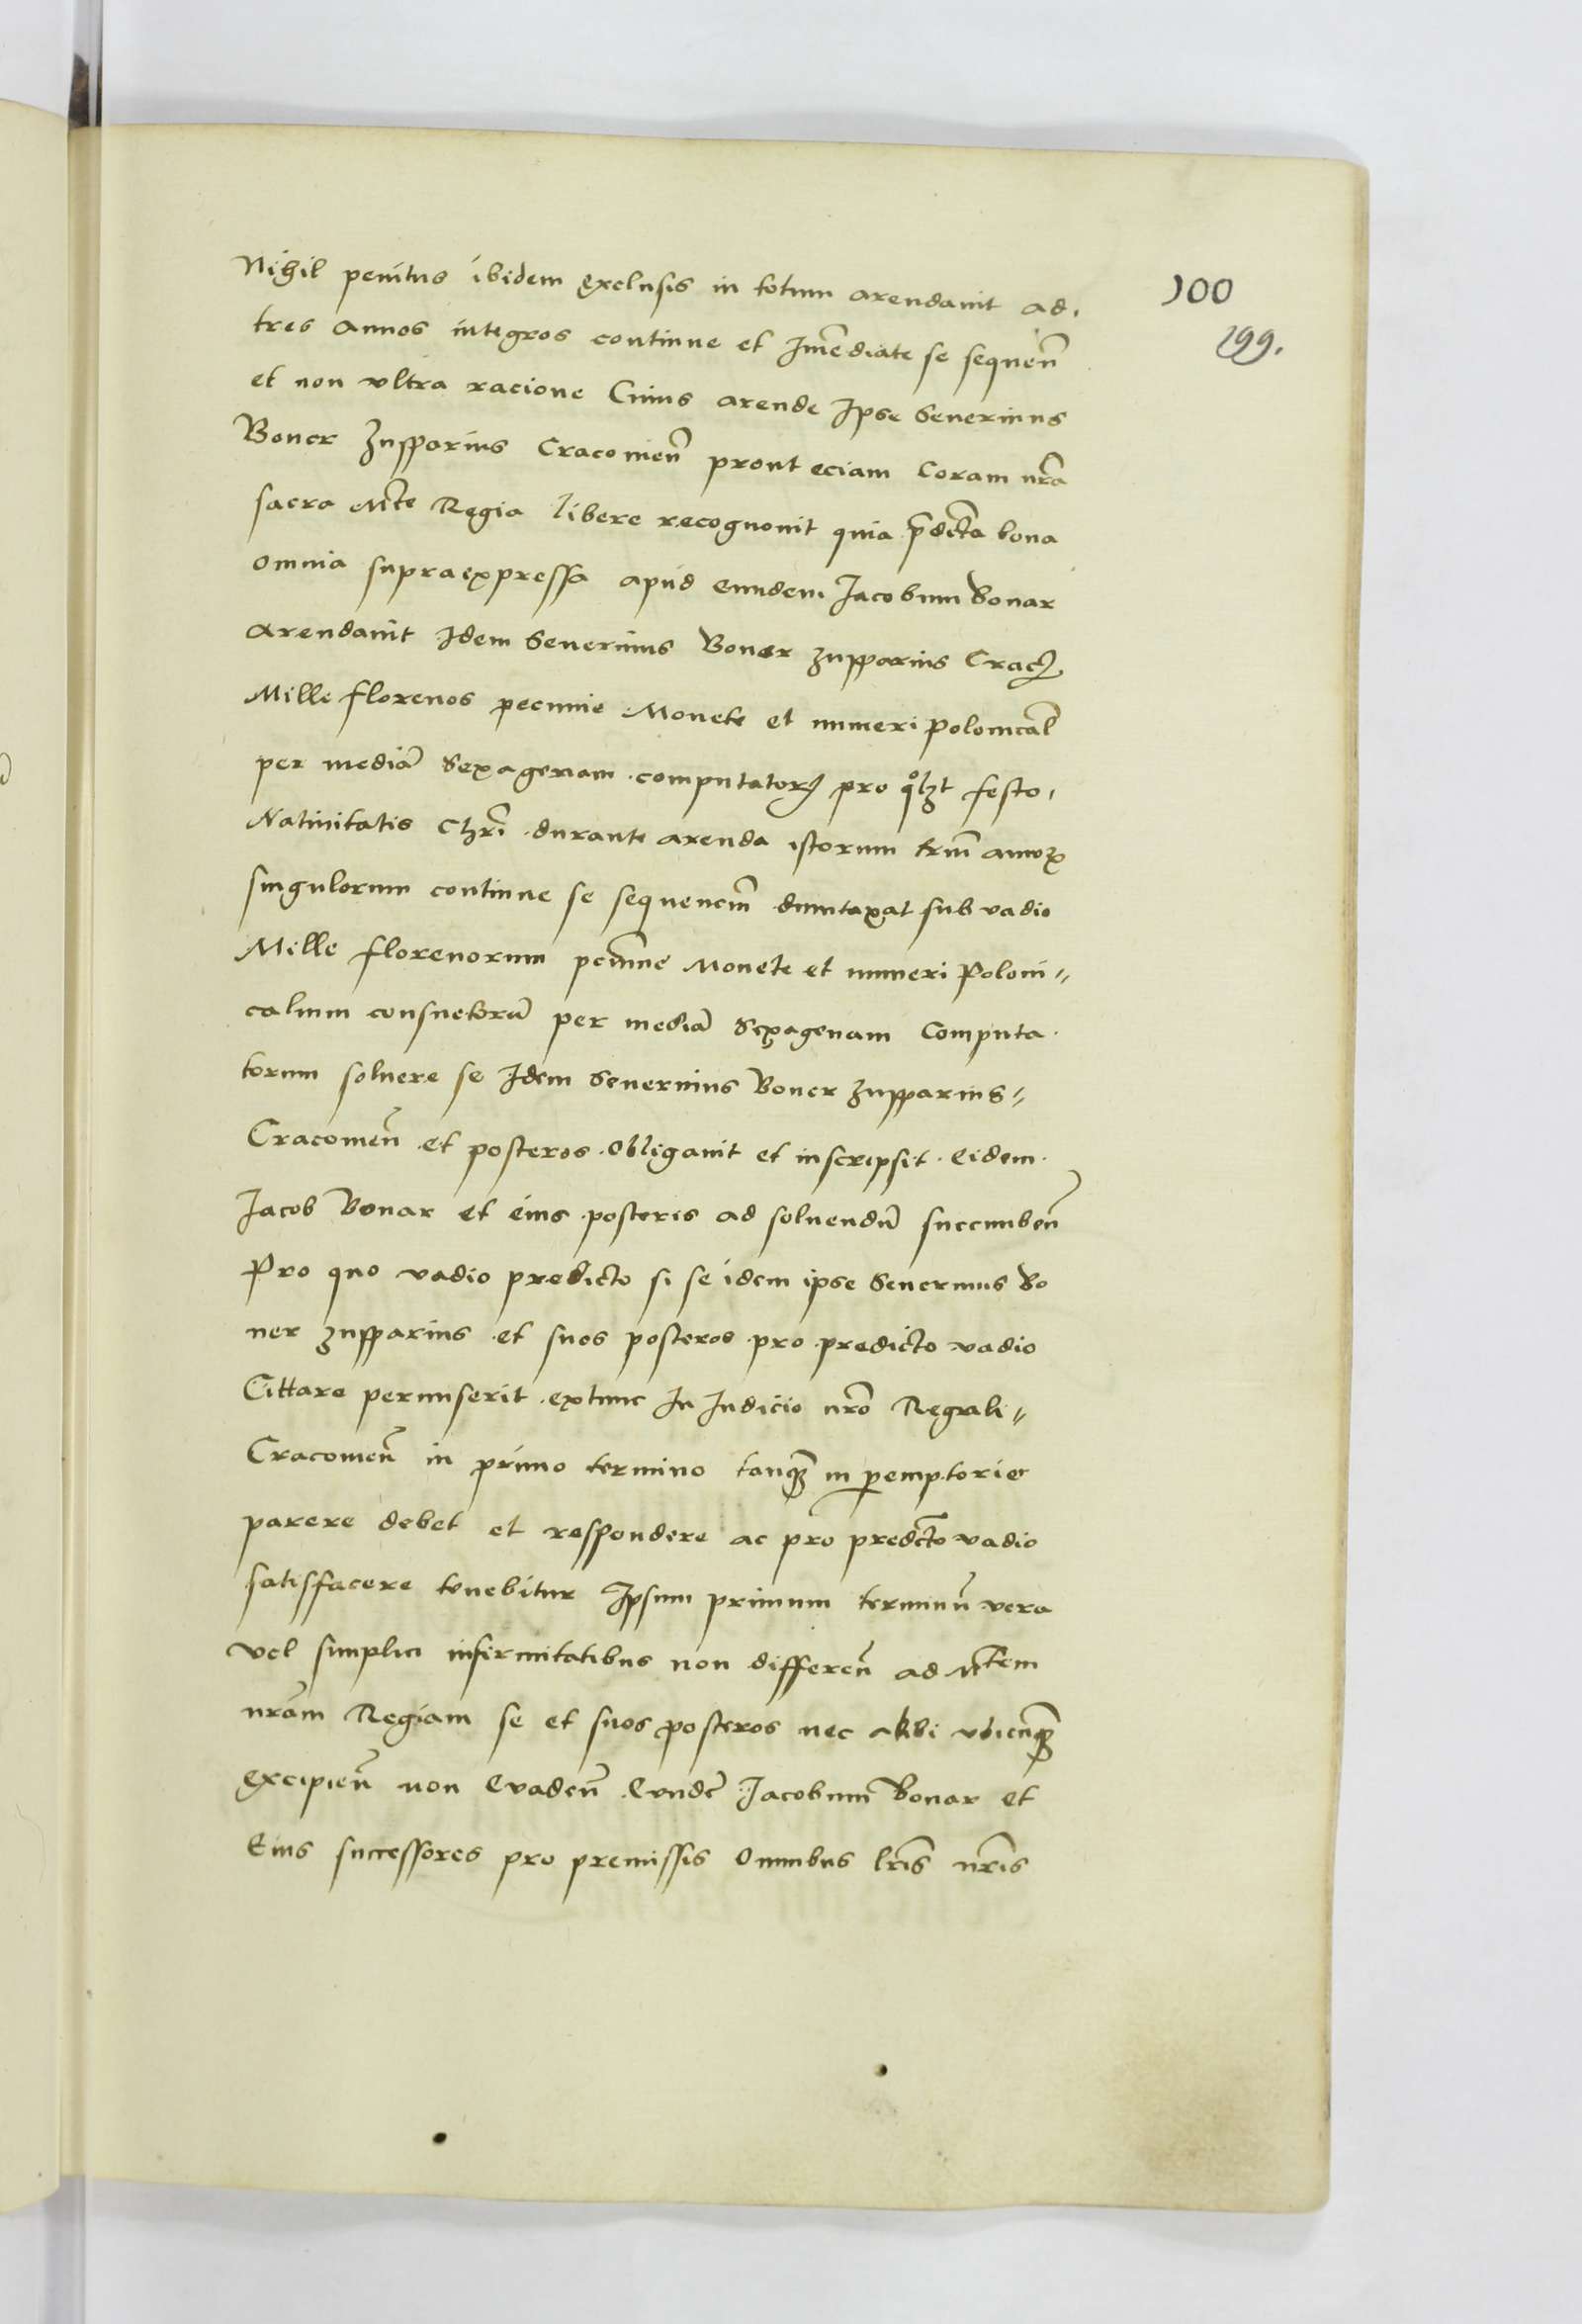 Nihil penitus ibidem exclusis in totum arendauit ad
100
tres annos integros continue et Im̄ediate se sequen̄
199.
et non vltra racione Cuius arende Ipse Seuerinus
Boner Zupparius Cracouien̄ prout eciam Coram nr̄a
sacra Mte Regia libere recognouit quia p̄dicta bona
omnia supraexpressa apud eundem Jacobum Bonar
Arendauit Idem Seuerinus Boner zupparius Crac̄
Mille florenos pecunie Monete et numeri polonical̄
per mediā Sexagenam computator̄ pro qoꝉꝫt festo
Natiuitatis Chri durante arenda istorum triū annoꝝ
singulorum continue se sequenciū dumtaxat sub vadio
Mille florenorum pecūnie Monete et numeri Poloni=
calium consuetorū per mediā Sexagenam Computa
torum soluere se Idem Seuerinus Boner Zupparius=
Cracouien̄ et posteros obligauit et inscripsit eidem
Jacob Bonar et eius posteris ad soluendū succumben̄
Pro quo vadio predicto si se idem ipse Seuerinus Bo
ner zupparius et suos posteros pro predicto vadio
Cittare permiserit extunc In Iudicio nro Regali=
Cracouien̄ in primo termino tanqꝫ in peremptorie
parere debet et respondere ac pro predcto vadio
satisfacere tenebitur Ipsum primum terminū vera
vel simplici infirmitatibus non differen̄ ad Mtem
nram Regiam se et suos posteros nec alibi vbicūqꝫ
excipien̄ non Evaden̄ Eundē Jacobum Bonar et
Eius successores pro premissis Omnibus lris nris